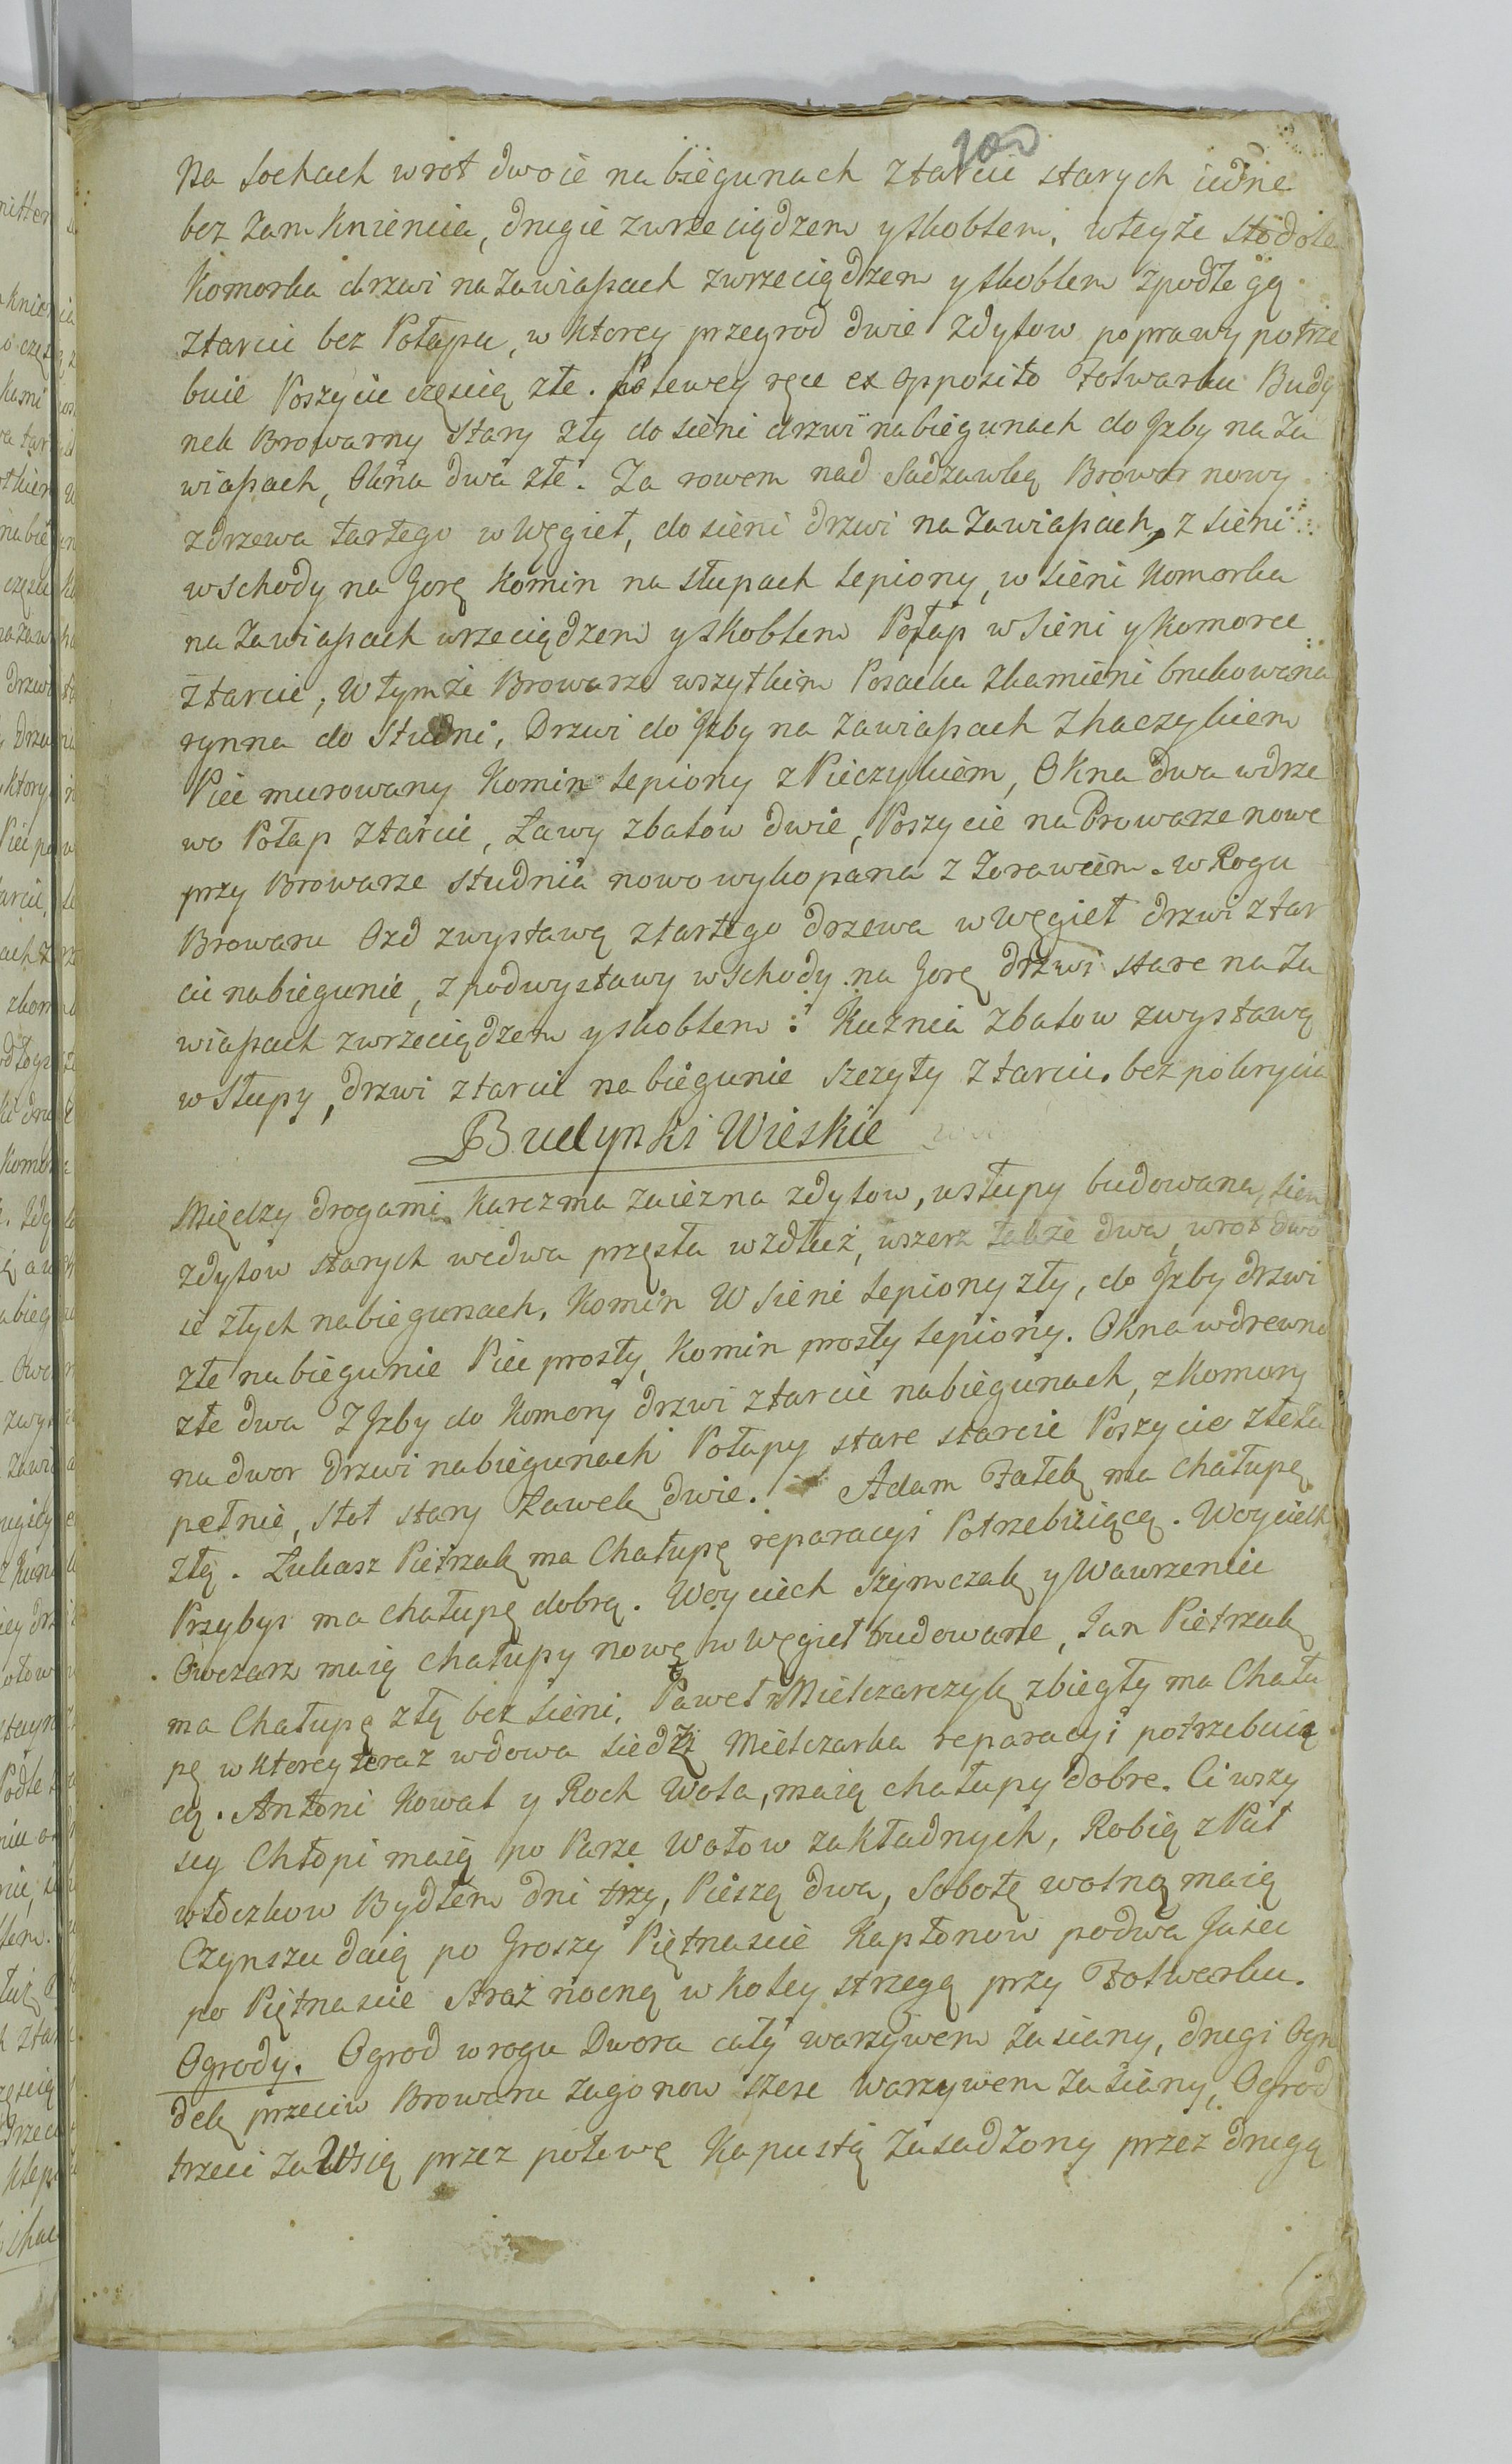 100
Na sochach wrot dwoie na biegunach z tarcic starych iedne
bez zamknieniia, drugie z wrzeciądzem y skoblem, w teyże stodole
Komorka drzwi na zawiasach z wrzeciądzem y skoblem z podłogą
z tarcic bez Połapu, w ktorey przegrod dwie z dylow poprawy potrze
buie Poszycie częscią złe. Po lewey ręce ex opposito Folwarku Budy
nek Browarny stary zły do sieni drzwi na biegunach do Jzby na za
wiasach, Okna dwa złe. Za rowem nad Sadzawką Browar nowy
z drzewa tartego w Węgieł, do sieni drzwi na zawiasach, z sieni
wschody na Gorę komin na słupach lepiony, w sieni Komorka
na zawiasach wrzeciądzem y skoblem Połap w sieni y komorce
z tarcic, W tymże Browarze wszytkim Posacka z kamieni brukowana
rynna do Studni, Drzwi do Jzby na zawiasach z haczykiem
Piec murowany Komin lepiony z Pieczykiem, Okna dwa w drze
wo Połap z tarcic, Ławy z balow dwie, Poszycie na Browarze nowe
przy Browarze studnia nowo wykopana z Zorawiem. w Rogu
Browaru Ozd z wystawą z tartego drzewa w Węgieł drzwi z tar
cic na biegunie, z pod wystawy wschody na Gorę drzwi stare na za
wiasach z wrzeciądzem y skoblem: Kuznia z balow z wystawą
w słupy, drzwi z tarcic na biegunie Szczyty z tarcic. bez pokrycia
Budynki Wieskie
Między drogami Karczma zaiezna z dylow, w słupy budowana, sien
z dylow starych we dwa przęsła wzdłuż, wszerz także dwa, wrot dwo
ie złych na biegunach, Komin W sieni lepiony zły, do Jzby drzwi
złe na biegunie Piec prosty, Komin prosty lepiony. Okna w drewno
złe dwa Z Jzby do Komory drzwi z tarcic na biegunach, z Komory
na dwor drzwi na biegunach Połapy stare starcic Poszycie złe zu
pełnie, stoł stary Ławek dwie. Adam Fałek ma chałupę
złą. Łukasz Pietrzak ma Chałupę reparacyi Potrzebuiącą. Woyciech
Przybył ma chałupę dobrą. Woyciech Szymczak y Wawrzeniec
Owczarz maią chałupy nowe w węgieł budowane, Jan Pietrzak
ma Chałupę złą bez sieni, Paweł Mielczarczyk zbiegły ma Chału
pę w ktorey teraz wdowa siedzi Mielczarka reparacyi potrzebuią
cą. Antoni Kowal y Roch Wola, maią chałupy dobre. Ci wszy
scy Chłopi maią po Parze Wołow zakładnych, Robią z Puł
włoczkow Bydłem dni trzy, Pieszą dwa, Sobotę wolną maią
Czynszu daią po Groszy Piętnascie Kapłonow po dwa Jaiec
po Piętnascie straż nocną w koley strzegą przy Folwarku.
Ogrody. Ogrod w rogu Dwora cały warzywem zasiany, drugi Ogro
dek przeciw Browaru zagonow szesc warzywem zasiany, Ogrod
trzeci za Wsią przez połowę Kapustą zasadzony przez drugą